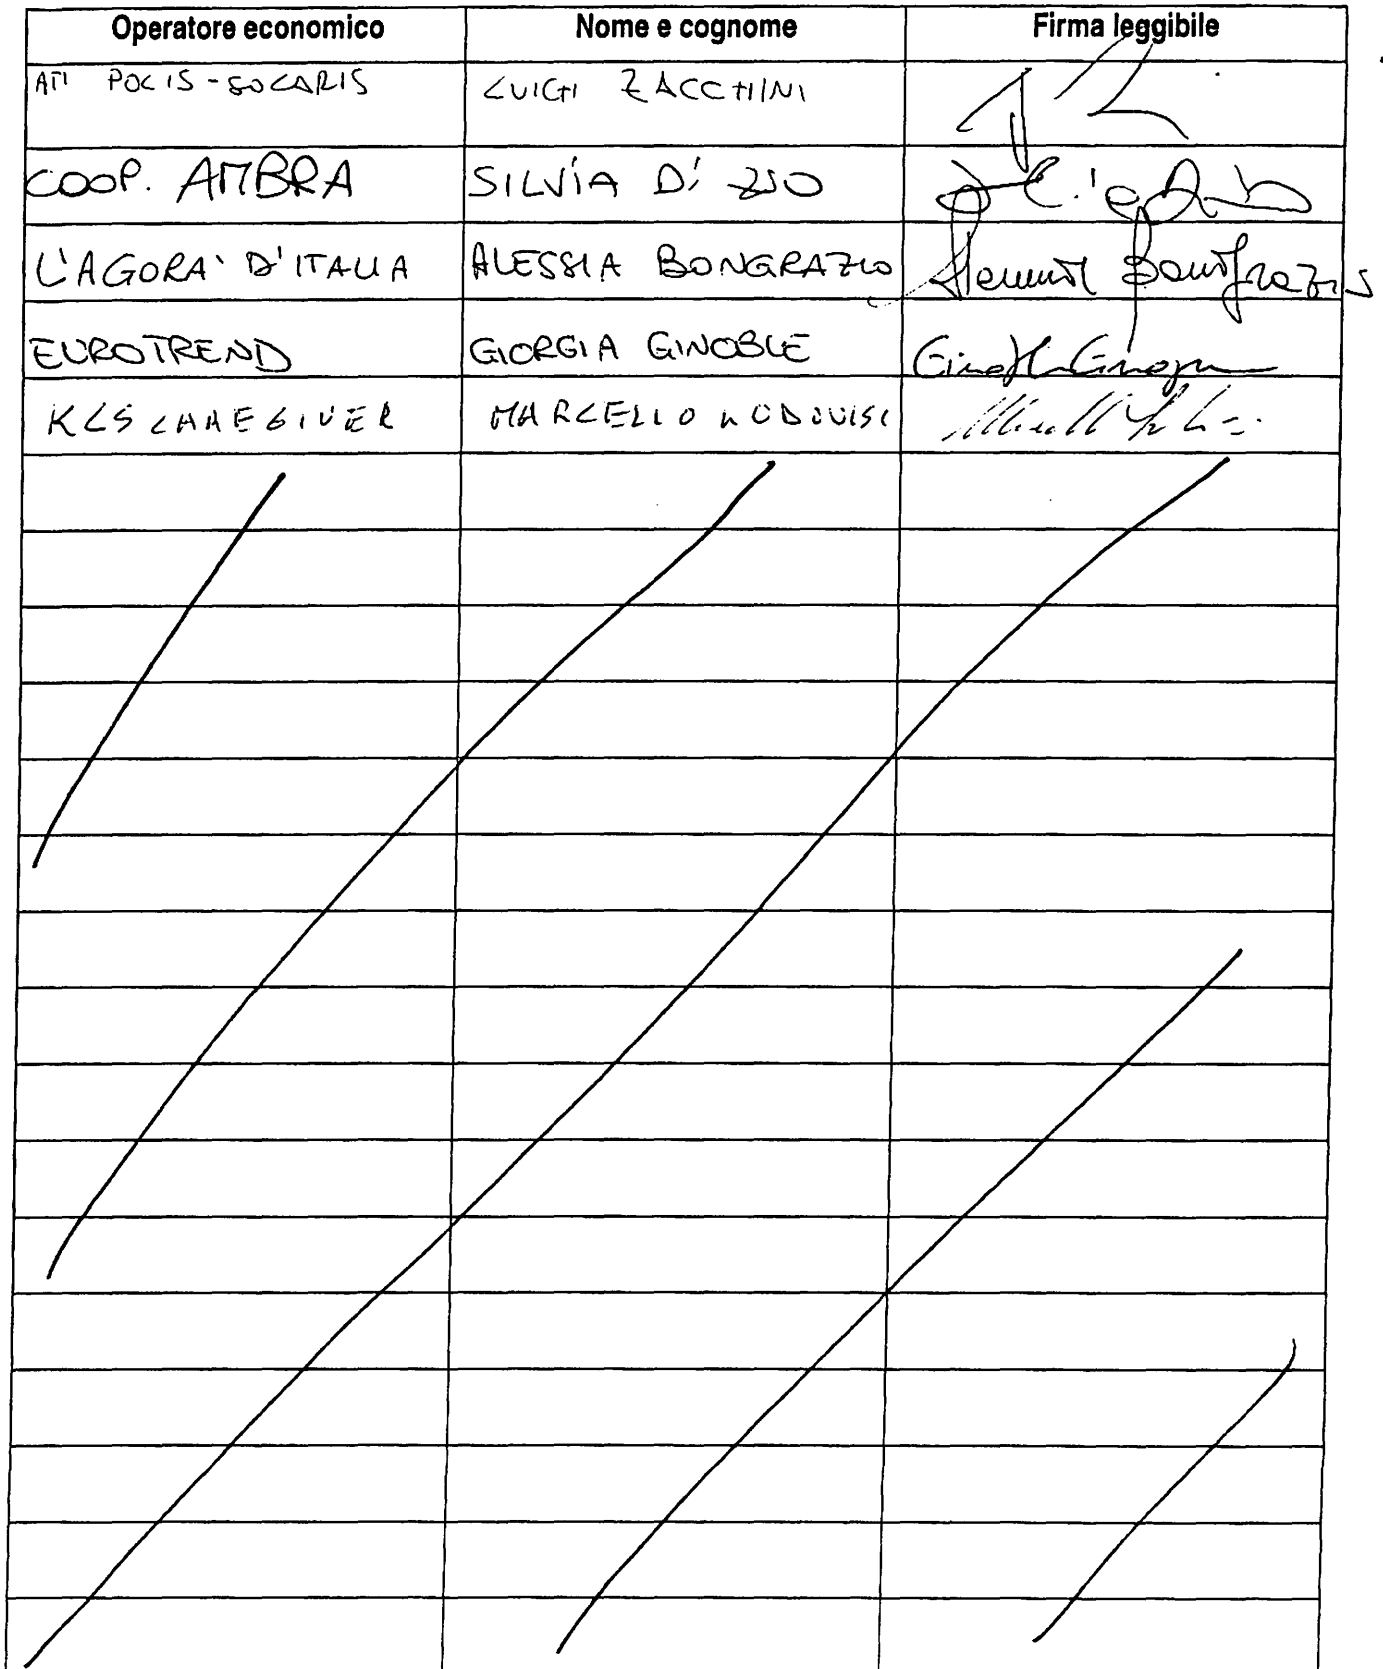 Operatore economico Nome e cognome Firma leggibile
ATI POLIS-SOLARIS LUIGI ZACCHINI
COOP. AMBRA SILVIA DI ZIO
L'AGORA' D'ITALIA ALESSIA BONGRAZIO Bongrazio
EUROTREND GIORGIA GINOBLE
KCS CAREGIVER MARCELLO LODOVISI